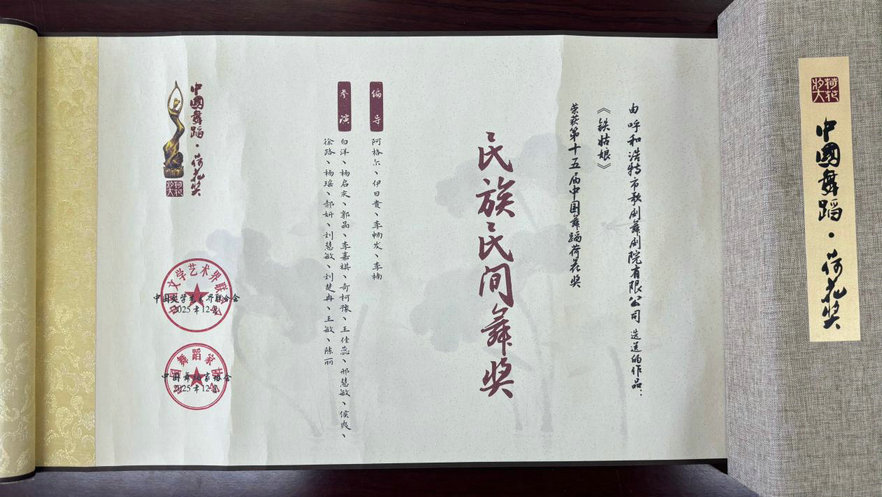 由呼和浩特市歌剧舞剧院有限公司 选送的作品：
《铁姑娘》
荣获第十五届中国舞蹈荷花奖
民族民间舞奖
编导
阿格尔、伊日贵、李畅发、李楠
参演
白洋、杨启文、郭磊、李嘉棋、奇柯豫、王佳蕊、邢慧敏、侯彧、
徐路、杨瑶、郝妍、刘慧敏、刘楚冉、王敏、陈丽
中國舞蹈·荷花奖
中国文学艺术界联合会
2025年12月
中国舞蹈家协会
2025年12月
中國舞蹈·荷花奖